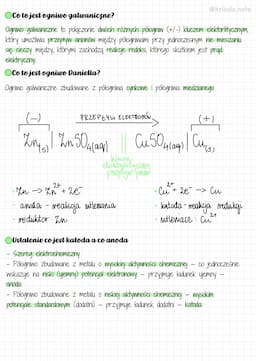 @kriade.note
Co to jest ogniwo galwaniczne?
Ogniwo galwaniczne to połączenie dwóch różnych półogniw (+/-) kluczem elektrolitycznym,
który umożliwia przepływ anionów między półogniwami przy jednoczesnym nie mieszaniu
się cieczy między, którymi zachodzą reakcje redoks, którego skutkiem jest prąd
elektryczny.
Co to jest ogniwo Daniella?
Ogniwo galwaniczne zbudowane z półogniwa cynkowe i półogniwa miedzianego
(-) PRZEPŁYW ELEKTRONÓW (+)
Zn(s) | ZnSO4(aq) || CuSO4(aq) | Cu(s)
klucz
elektrolityczny
· Zn → Zn2+ + 2e-
· Cu2+ + 2e- → Cu
· anoda - reakcja utleniania
· katoda - reakcja redukcji
· reduktor: Zn
· utleniacz: Cu2+
Ustalenie co jest katodą a co anodą
- Szereg elektrochemiczny
- Półogniwo zbudowane z metalu o wysokiej aktywności chemicznej – co jednocześnie
wskazuje na niski (ujemny) potencjał elektronowy – przyjmuje ładunek ujemny –
anoda
- Półogniwo zbudowane z metalu o niskiej aktywności chemicznej – wysokim
potencjale standardowym (dodatnim) – przyjmuje ładunek dodatni – katoda